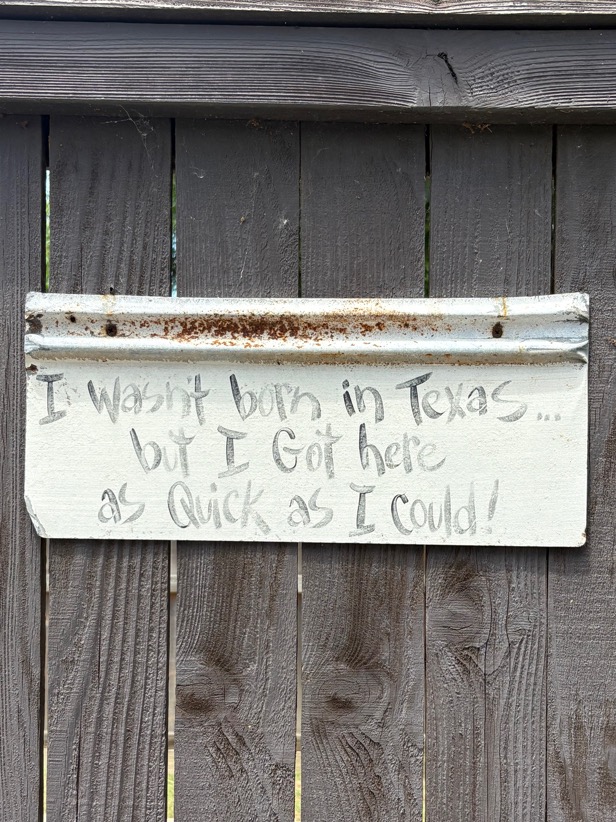 I wasn't born in Texas...
but I Got here
as Quick as I could!